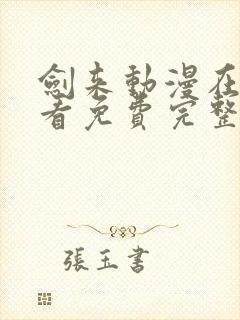 劍來動漫在
看免費完整
張玉書